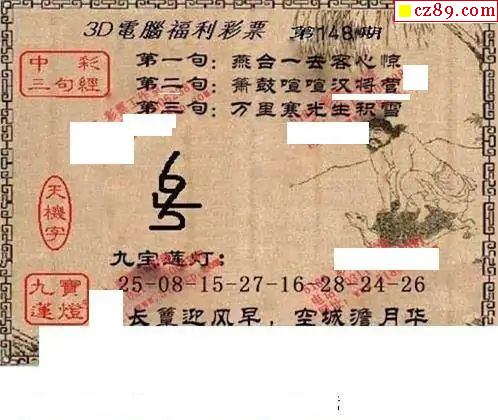 cz89.com
3D電腦福利彩票 第148期
中彩
三句經
第一句：燕合一去客心惊
第二句：箫鼓喧喧汉将营
第三句：万里寒光生积雪
天機字
九宝莲灯:
25-08-15-27-16-28-24-26
九寶
蓮燈
长簟迎风早，空城澹月华